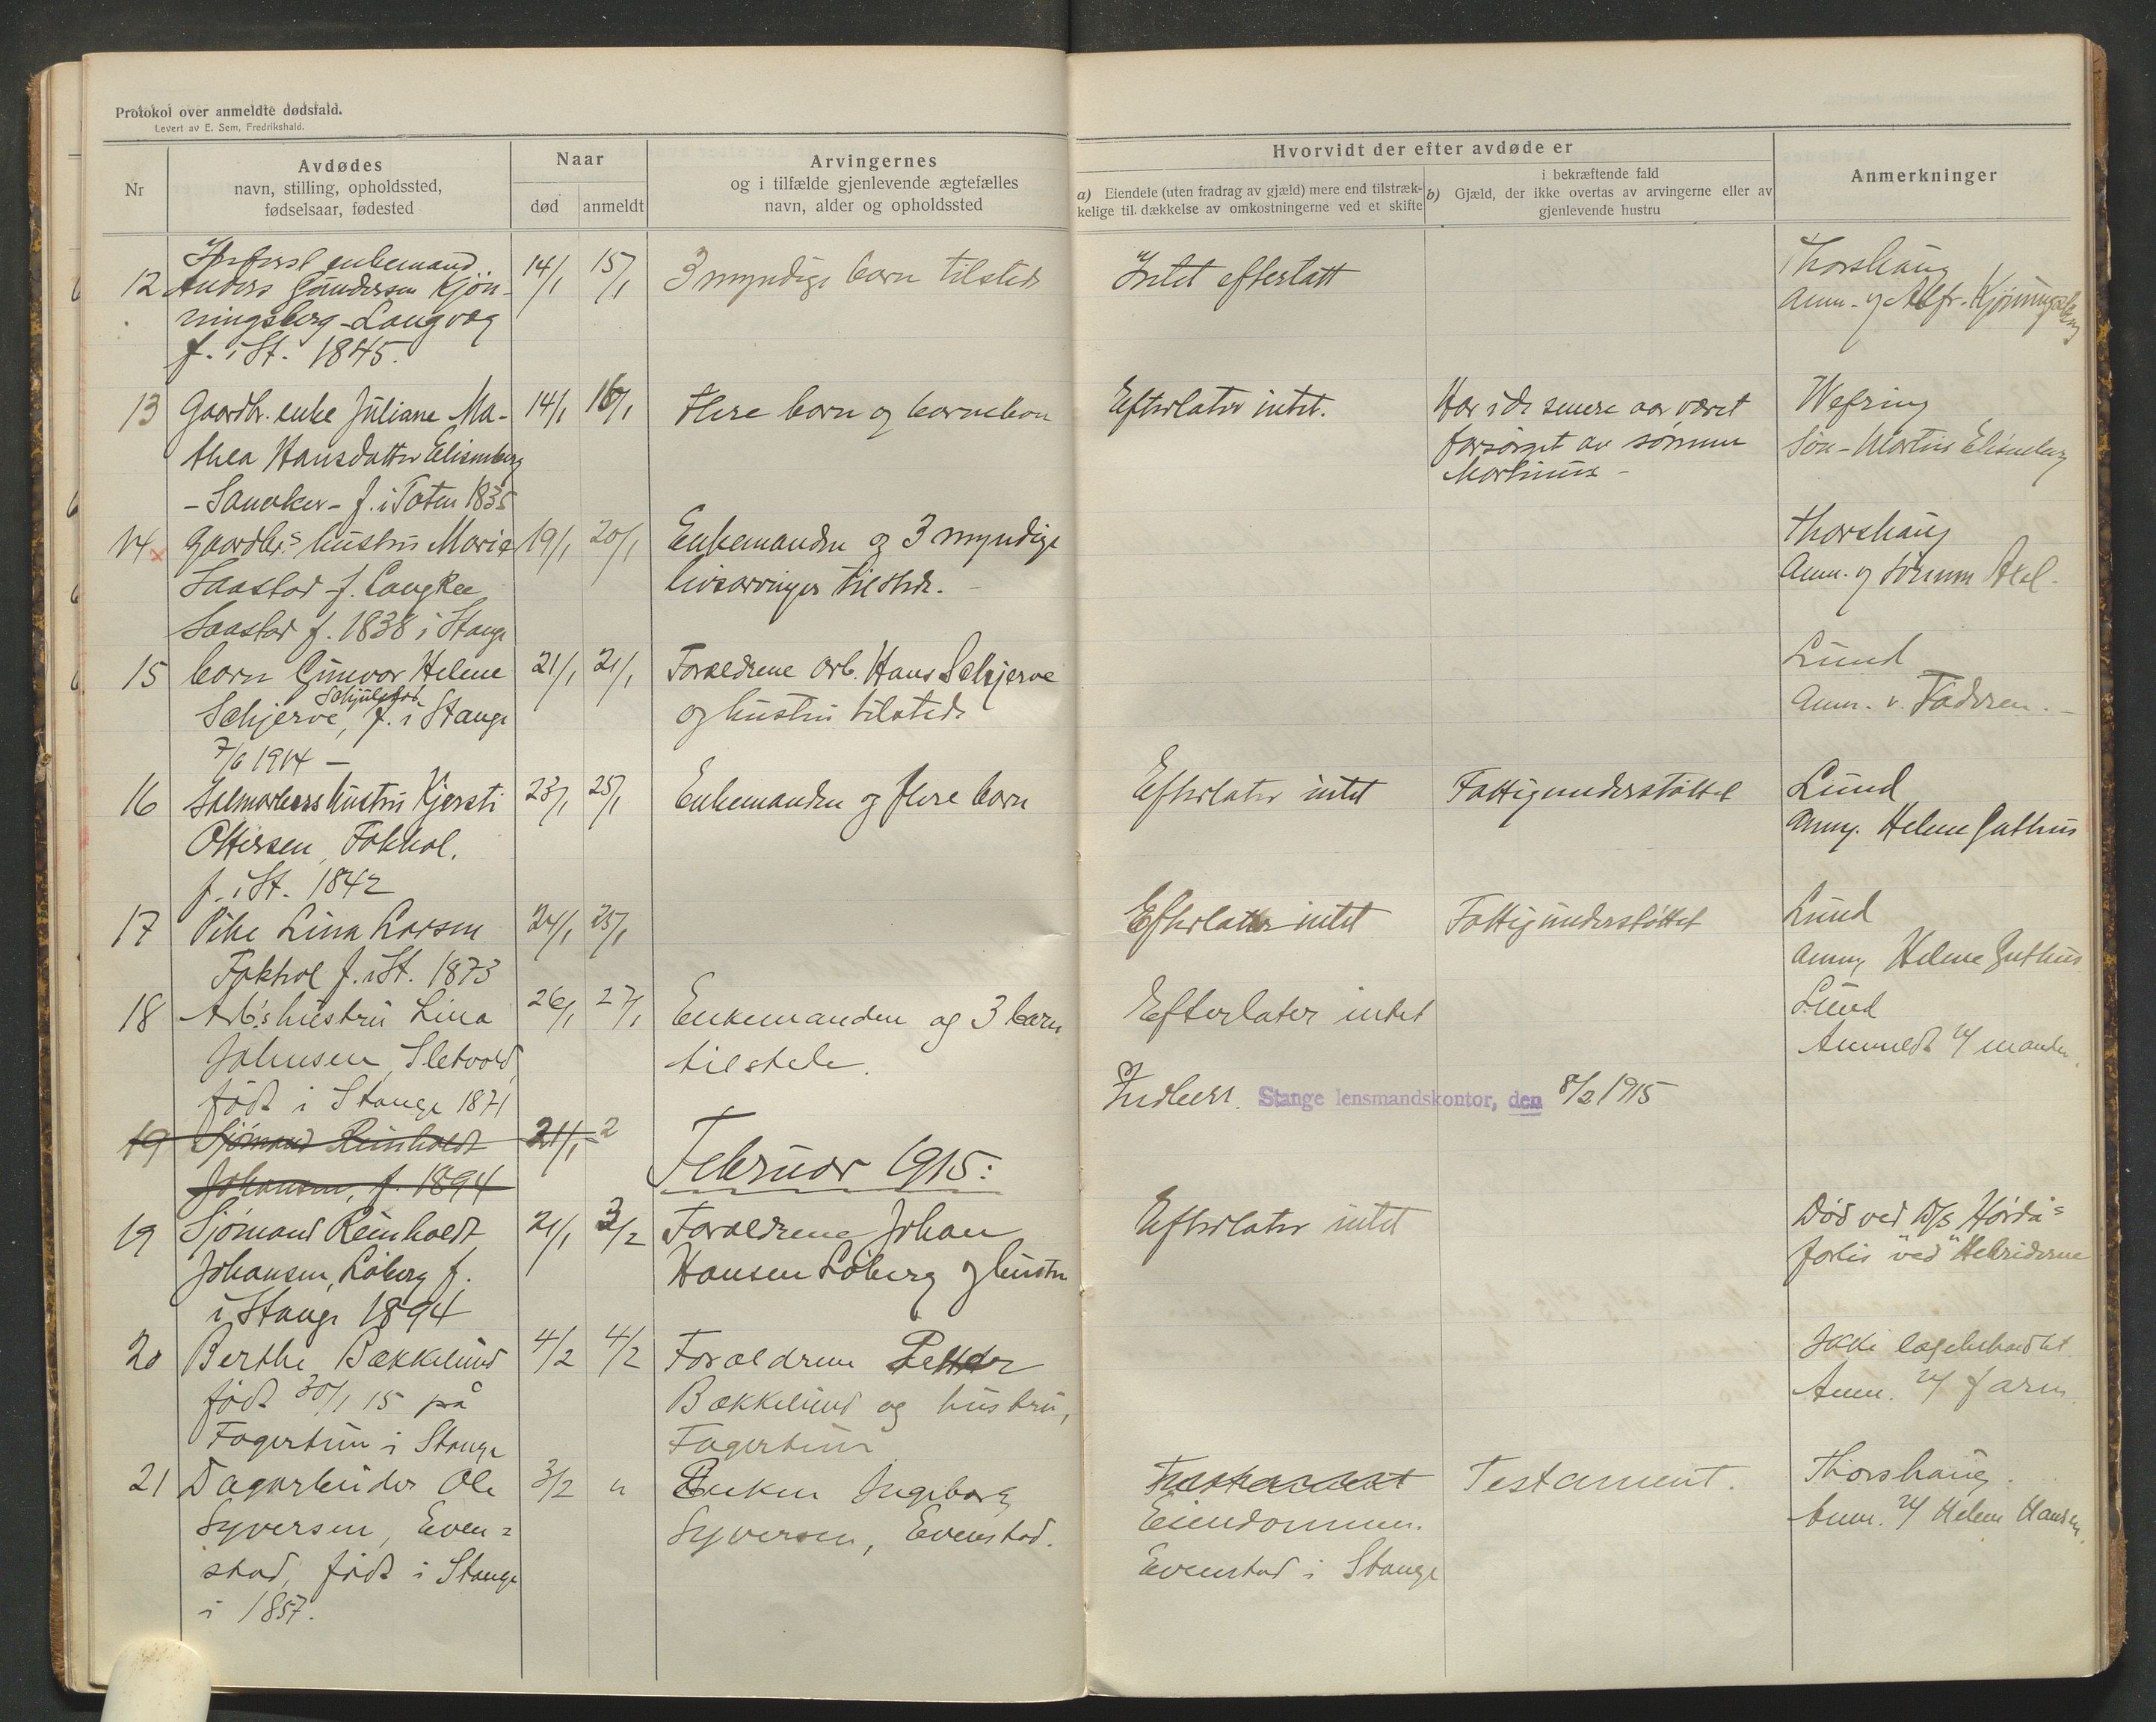 Protokol over anmeldte dødsfald.
Levert av E. Sem, Fredrikshald.
Nr
Avdødes
navn, stilling, opholdssted,
fødselsaar, fødested
Naar
død
anmeldt
Arvingernes
og i tilfælde gjenlevende ægtefælles
navn, alder og opholdssted
Hvorvidt der efter avdøde er
a) Eiendele (uten fradrag av gjæld) mere end tilstræk-
kelige til dækkelse av omkostningerne ved et skifte
i bekræftende fald
b) Gjæld, der ikke overtas av arvingerne eller av
gjenlevende hustru
Anmerkninger
enkemand
12 Anders Gundersen Kjøn-
ningsberg - Langvag
f. i St. 1845.
14/1 15/1
3 myndige børn tilstede
Intet efterlatt
Thorshaug
Anm. af Alfr. Kjønningsberg
13 Gaardbr. enke Juliane Ma-
thea Hansdatter Elisenberg
- Sanaker - f. i Toten 1835
14/1 16/1
flere børn og børnebørn
Efterlater intet.
Har i de senere aar været
forsørget av sønnen
Martinius -
Wefring
Søn - Martin Elisenberg
14 Gaardbrs hustru Marie
Saastad f. Langkee
Saastad f. 1838 i Stange
19/1 20/1
Enkemanden og 3 myndige
livsarvinger tilstede. -
Thorshaug
Anm. af sønnen Axel.
15 barn Gunvor Helene
Schjulstad
Schjerve, f. i Stange
7/6 1914 -
21/1 21/1
Forældrene Arb. Hans Schjerve
og hustru tilstede
Lund
Anm. v. Faderen. -
16 hustru Kjersti
Ottersen, Fokhol.
f. i St. 1842
23/1 25/1
Enkemanden og flere børn
Efterlater intet
Fattigunderstøttet
Lund
Anm. Helene Guthus
17 Pike Lina Larsen
Fokhol f. i St. 1873
24/1 25/1
Efterlater intet
Fattigunderstøttet
Lund
Anm. Helene Guthus
18 Arb's hustru Lina
Johnsen, Sletvold,
født i Stange 1871
26/1 27/1
Enkemanden og 3 barn
tilstede.
Efterlater intet
Lund
Anmeldt af manden.
Indber. Stange lensmandskontor, den 8/2 1915
19 Sjömand Reinholdt
Johansen, f. 1894
21/1 2
Februar 1915:
19 Sjömand Reinholdt
Johansen, Løberg f.
i Stange 1894
21/1 3/2
Forældrene Johan
Hansen Løberg og hustru
Efterlater intet
Død ved D/S "Hørda"s
forlis ved Hebriderne
20 Berthe Bækkelund
født 30/1 15 på
Fagertun i Stange
4/2 4/2
Forældrene Petter
Bækkelund og hustru,
Fagertun
Ikke lægebehandlet.
Anm. af faren.
21 Dagarbeider Ole
Syversen, Even=
stad, født i Stange
i 1857.
3/2 "
Enken Ingeborg
Syversen, Evenstad.
Testament
Eiendommen
Evenstad i Stange
Testament.
Thorshaug.
Anm. af Helene Hansen.